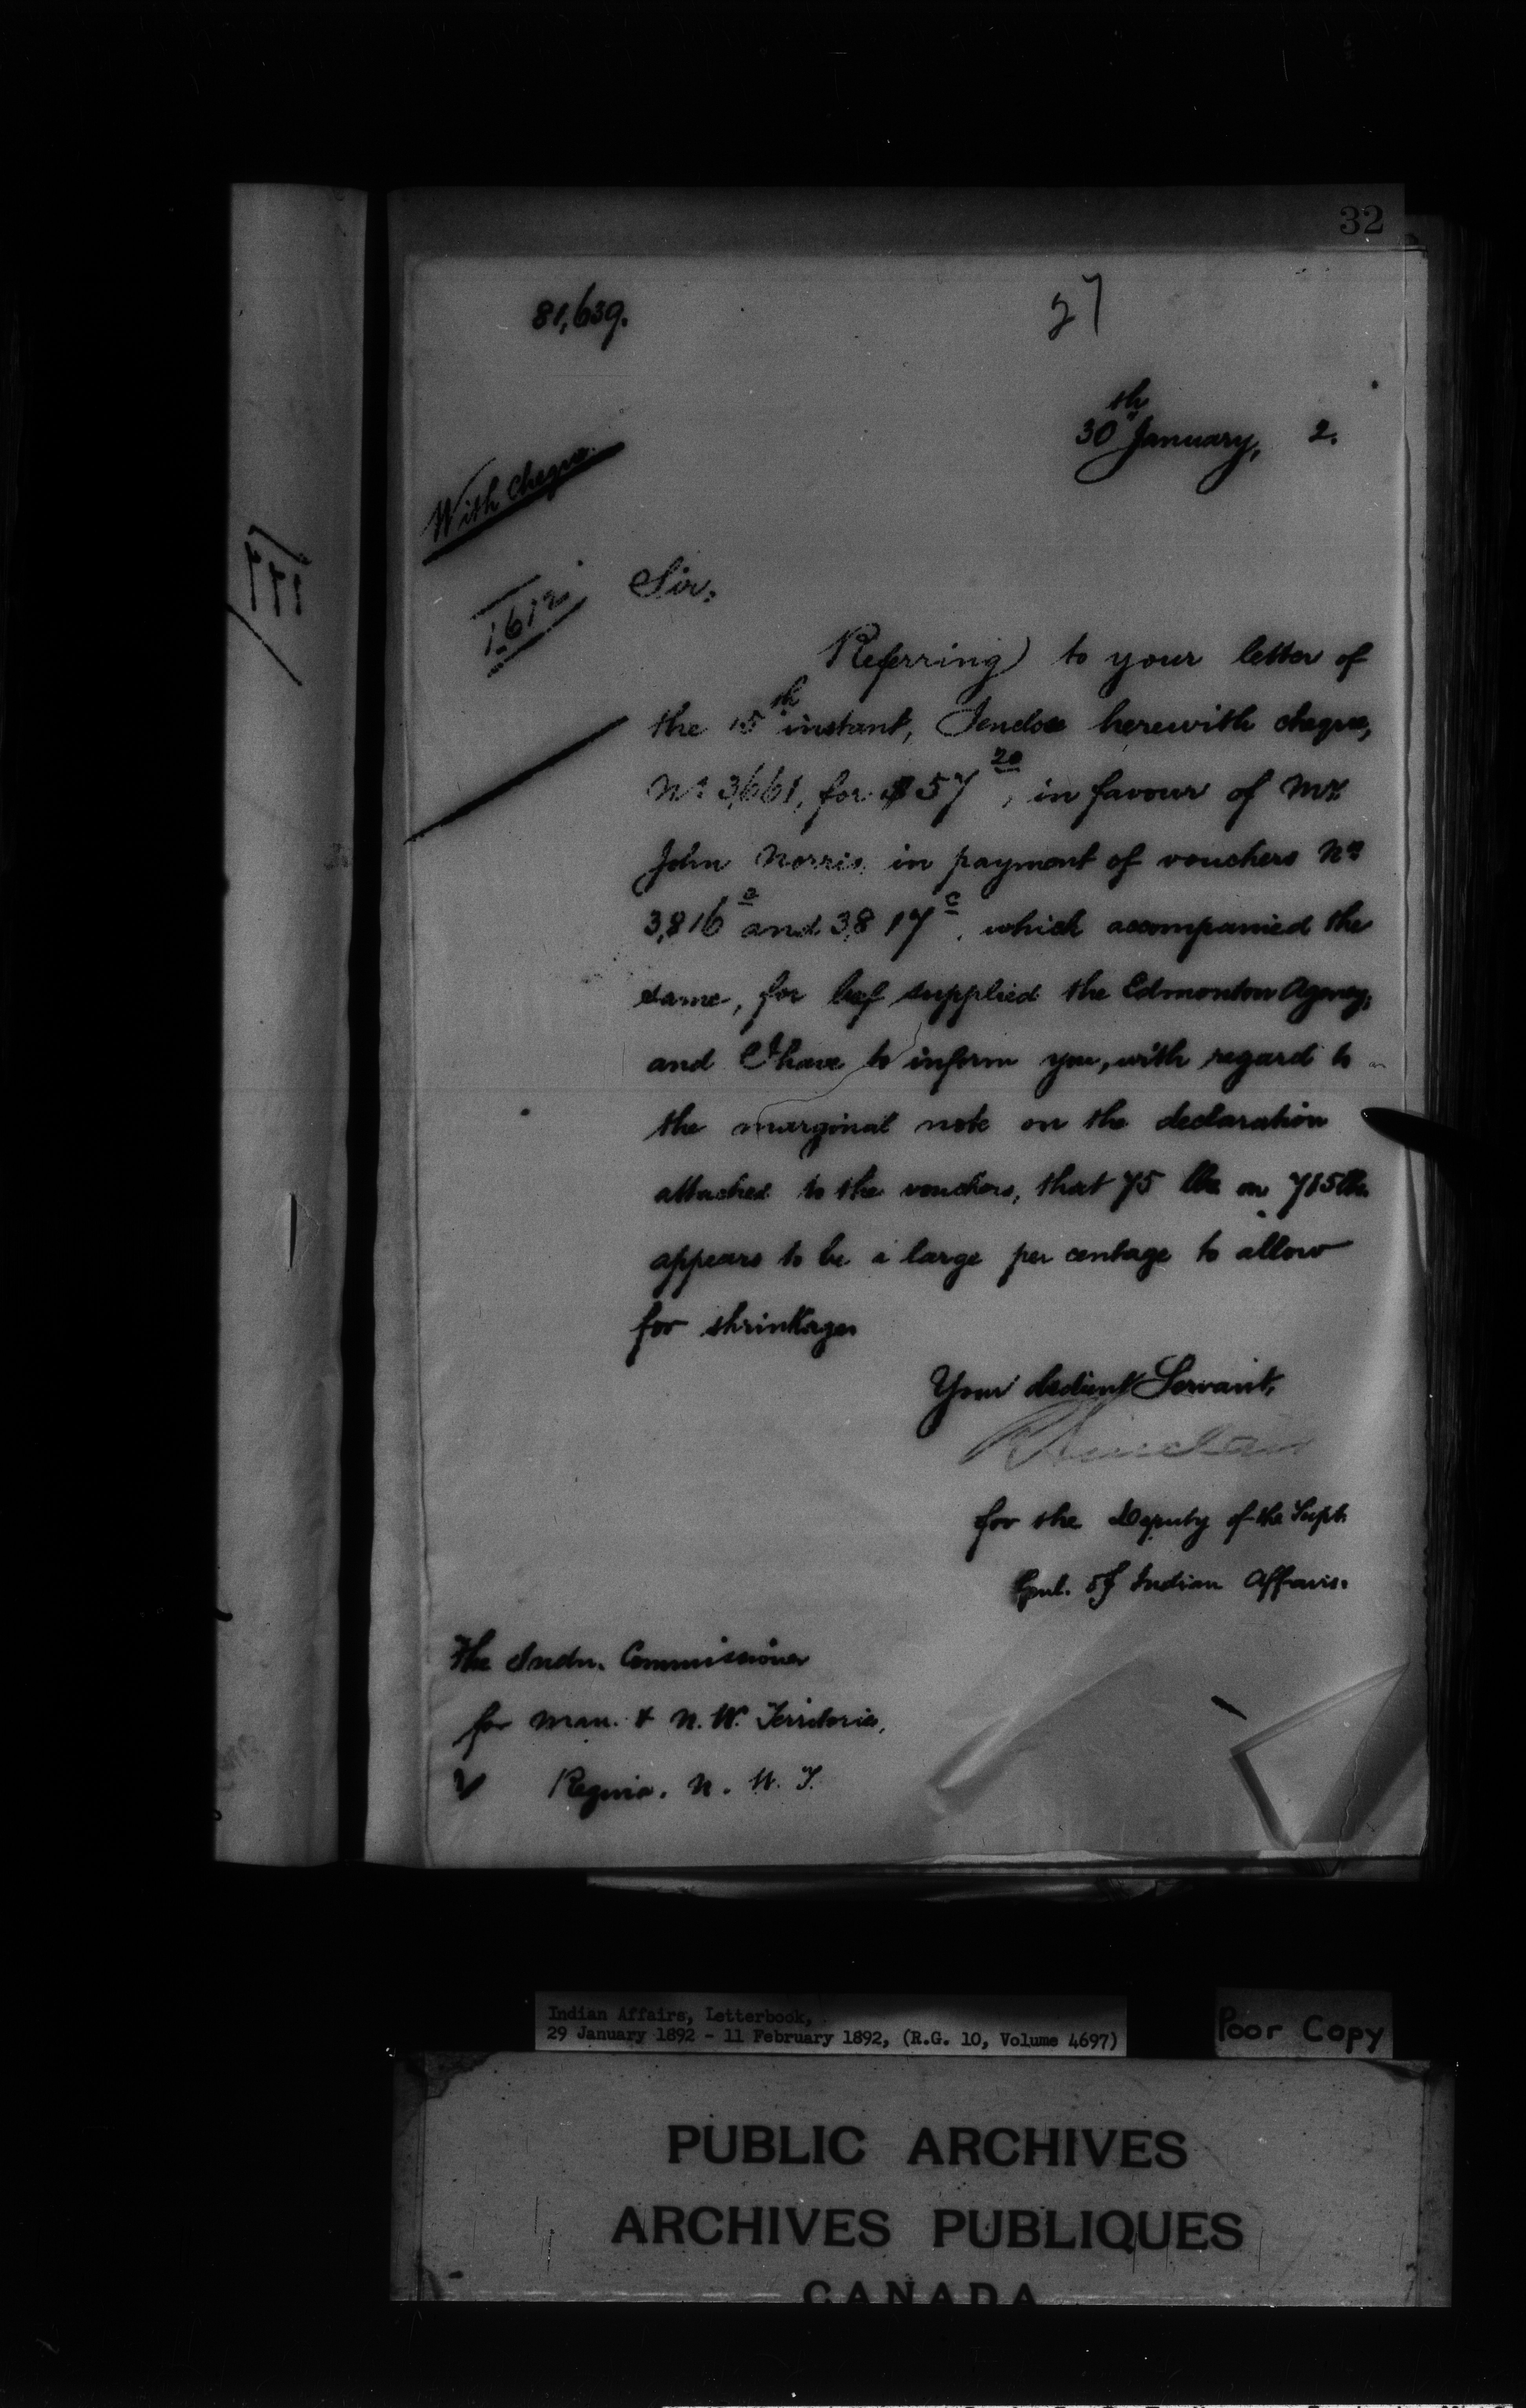 32
81,639.
27
30th January, 2.
With cheque.
1612
Sir,
Referring to your letter of
the 15th instant, I enclose herewith cheque,
No 3,661, for $57 20, in favour of Mr.
John Norris in payment of vouchers Nos
3,816 a and 3,817 c, which accompanied the
same, for beef supplied the Edmonton Agency,
and I have to inform you, with regard to
the marginal note on the declaration
attached to the vouchers, that 75 lbs on 715 lbs
appears to be a large per centage to allow
for shrinkage.
Your obedient Servant,
Sinclair
for the Deputy of the Supt.
Genl. of Indian Affairs.
The Indn. Commissioner
for Man. & N. W. Territories,
Regina. N. W. T.
Indian Affairs, Letterbook,
29 January 1892 - 11 February 1892, (R.G. 10, Volume 4697)
Poor Copy
PUBLIC ARCHIVES
ARCHIVES PUBLIQUES
CANADA